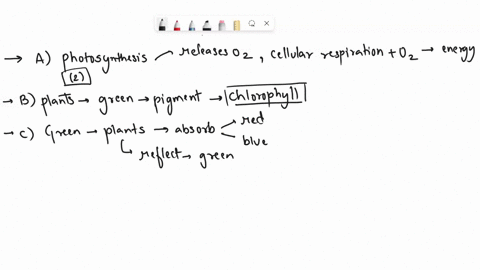 → A) photosynthesis — releases O2, cellular respiration + O2 → energy
(2)
→ B) plants → green → pigment → chlorophyll
→ C) Green → plants → absorb < red
blue
↳ reflect → green